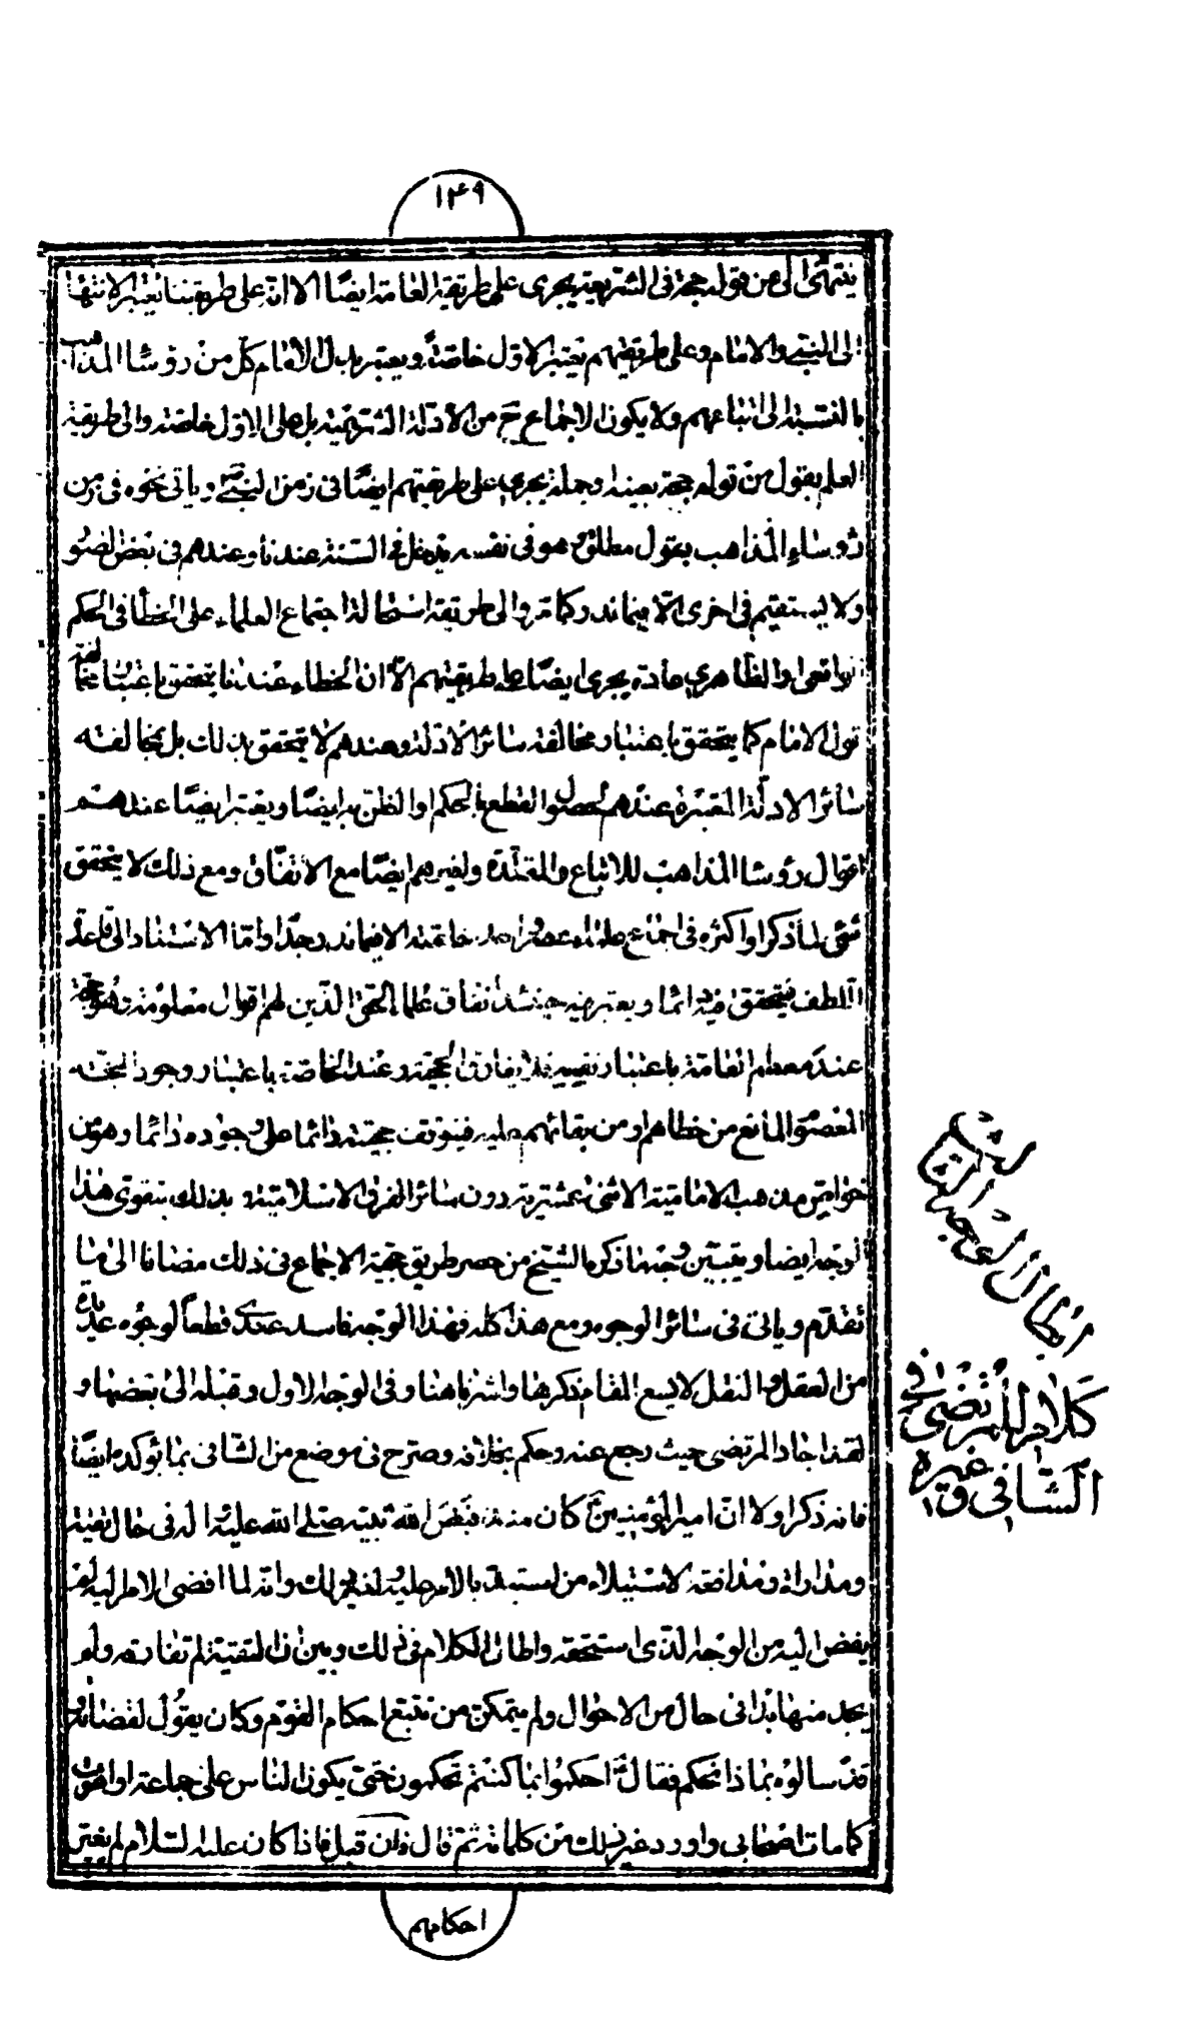 ١٤٩
ينتهى الى من قوله حجة فى الشريعة يجرى على طريقة العامة ايضا الا انه على طريقتنا يعتبر الانتهاء
الى النبى والامام وعلى طريقتهم يعتبر الاول خاصة ويعتبر بدل الامام كل من رؤسا المذاهب
بالنسبة الى اتباعهم ولا يكون الاجماع ح من الادلة الشرعية بل على الاول خاصة والى طريقة
العلم بقول من قوله حجة بعينه وجملة يجرى على طريقتهم ايضا فى زمن النبى ص وياتى نحوه فى زمن
رؤساء المذاهب بقول مطلق وهو فى نفسه يدخل فى السنة عندنا وعندهم فى بعض الصور
ولا يستقيم فى اخرى الا فيما ندر كما مر والى طريقة استحالة اجتماع العلماء على الخطأ فى الحكم
الواقعى والظاهرى عادة يجرى ايضا على طريقتهم الا ان الخطاء عندنا يتحقق باعتبار مخالفة
قول الامام كما يتحقق باعتبار مخالفة سائر الادلة وعندهم لا يتحقق بذلك بل بمخالفته
سائر الادلة المعتبرة عندهم لحصول القطع بالحكم او الظن به ايضا ويعتبر ايضا عندهم
اقوال رؤسا المذاهب للاتباع والمقلدة ولغيرهم ايضا مع الاتفاق ومع ذلك لا يتحقق
شئ مما ذكر او اكثره فى اجماع علماء عصر واحد خاتمته الا فيما ندر جدا واما الاستناد الى قاعدة
اللطف فيتحقق فيه دائما ويعتبر فيه حينئذ اتفاق علماء الحق الذين لهم اقوال معلومة وهو حجة
عند معظم العامة باعتبار نفسه فلا يفارق الحجية وعند الخاصة باعتبار وجود الحجة
المعصوم المانع من خطاهم ومن بقائهم عليه فيتوقف حجيته دائما على وجوده دائما وهو من
خواص مذهب الامامية الاثنى عشرية دون سائر الفرق الاسلامية وبذلك يتقوى هذا
الوجه ايضا ويتبين وجه ما ذكره الشيخ من حصر طريق حجية الاجماع فى ذلك مضافا الى ما
تقدم وياتى فى سائر الوجوه ومع هذا كله فهذا الوجه فاسد عندى قطعا لوجوه عديدة
من العقل والنقل لا يسع المقام ذكرها واشرنا هنا وفى الوجه الاول وقبله الى بعضها و
لقد اجاد المرتضى حيث رجع عنه وحكم بخلافه وصرح فى موضع من الشافى بما يؤكده ايضا
فانه ذكر اولا ان امير المؤمنين ع كان منذ قبض الله نبيه صلى الله عليه واله فى حال تقية
ومداراة ومدافعة لاستيلاء من استبد بالامر عليه لغير ذلك وانه لما افضى الامر اليه لم
يفض اليه من الوجه الذى استحقه واطال الكلام فى ذلك وبين ان التقية لم تفارقه ولم
يجد منها بدا فى حال من الاحوال ولم يتمكن من تتبع احكام القوم وكان يقول لقضاته و
قد سالوه بماذا نحكم فقال ع احكموا بما كنتم تحكمون حتى يكون الناس على جماعة او اموت
كما مات اصحابى واورد غير ذلك من كلماته ثم قال فان قيل فاذا كان عليه السلام لم يغير
احكامهم
ابطال الوجه الثالث
كلام المرتضى فى
الشافى وغيره